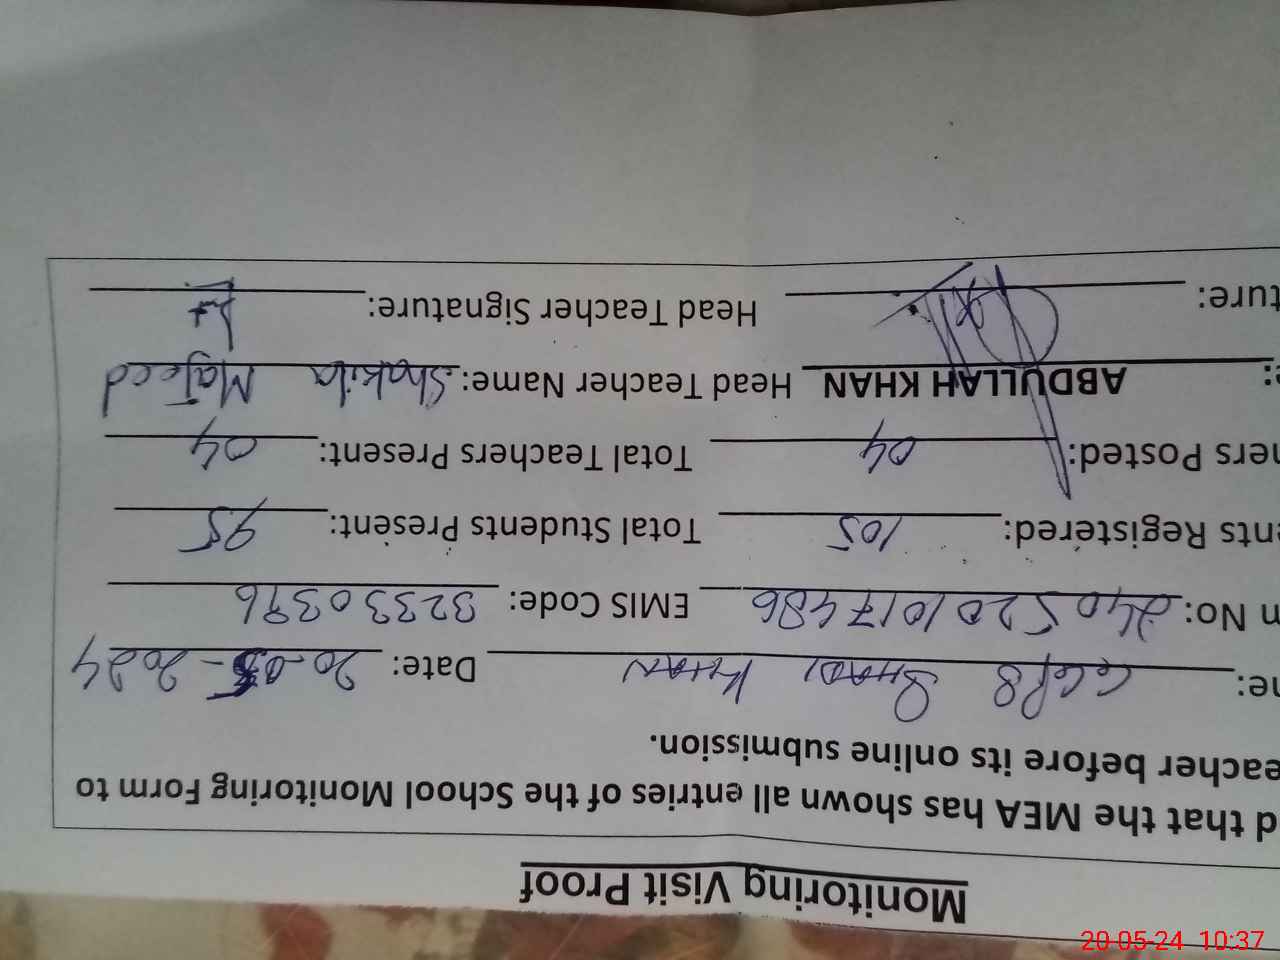 Monitoring Visit Proof
d that the MEA has shown all entries of the School Monitoring Form to
eacher before its online submission.
ne: GGPS SHADI KHAN Date: 20-05-2024
n No: 2405201017486 EMIS Code: 32330396
ents Registered: 105 Total Students Present: 95
ners Posted: 04 Total Teachers Present: 04
e: ABDULLAH KHAN Head Teacher Name: Shakila Majeed
ture: Head Teacher Signature:
20-05-24 10:37